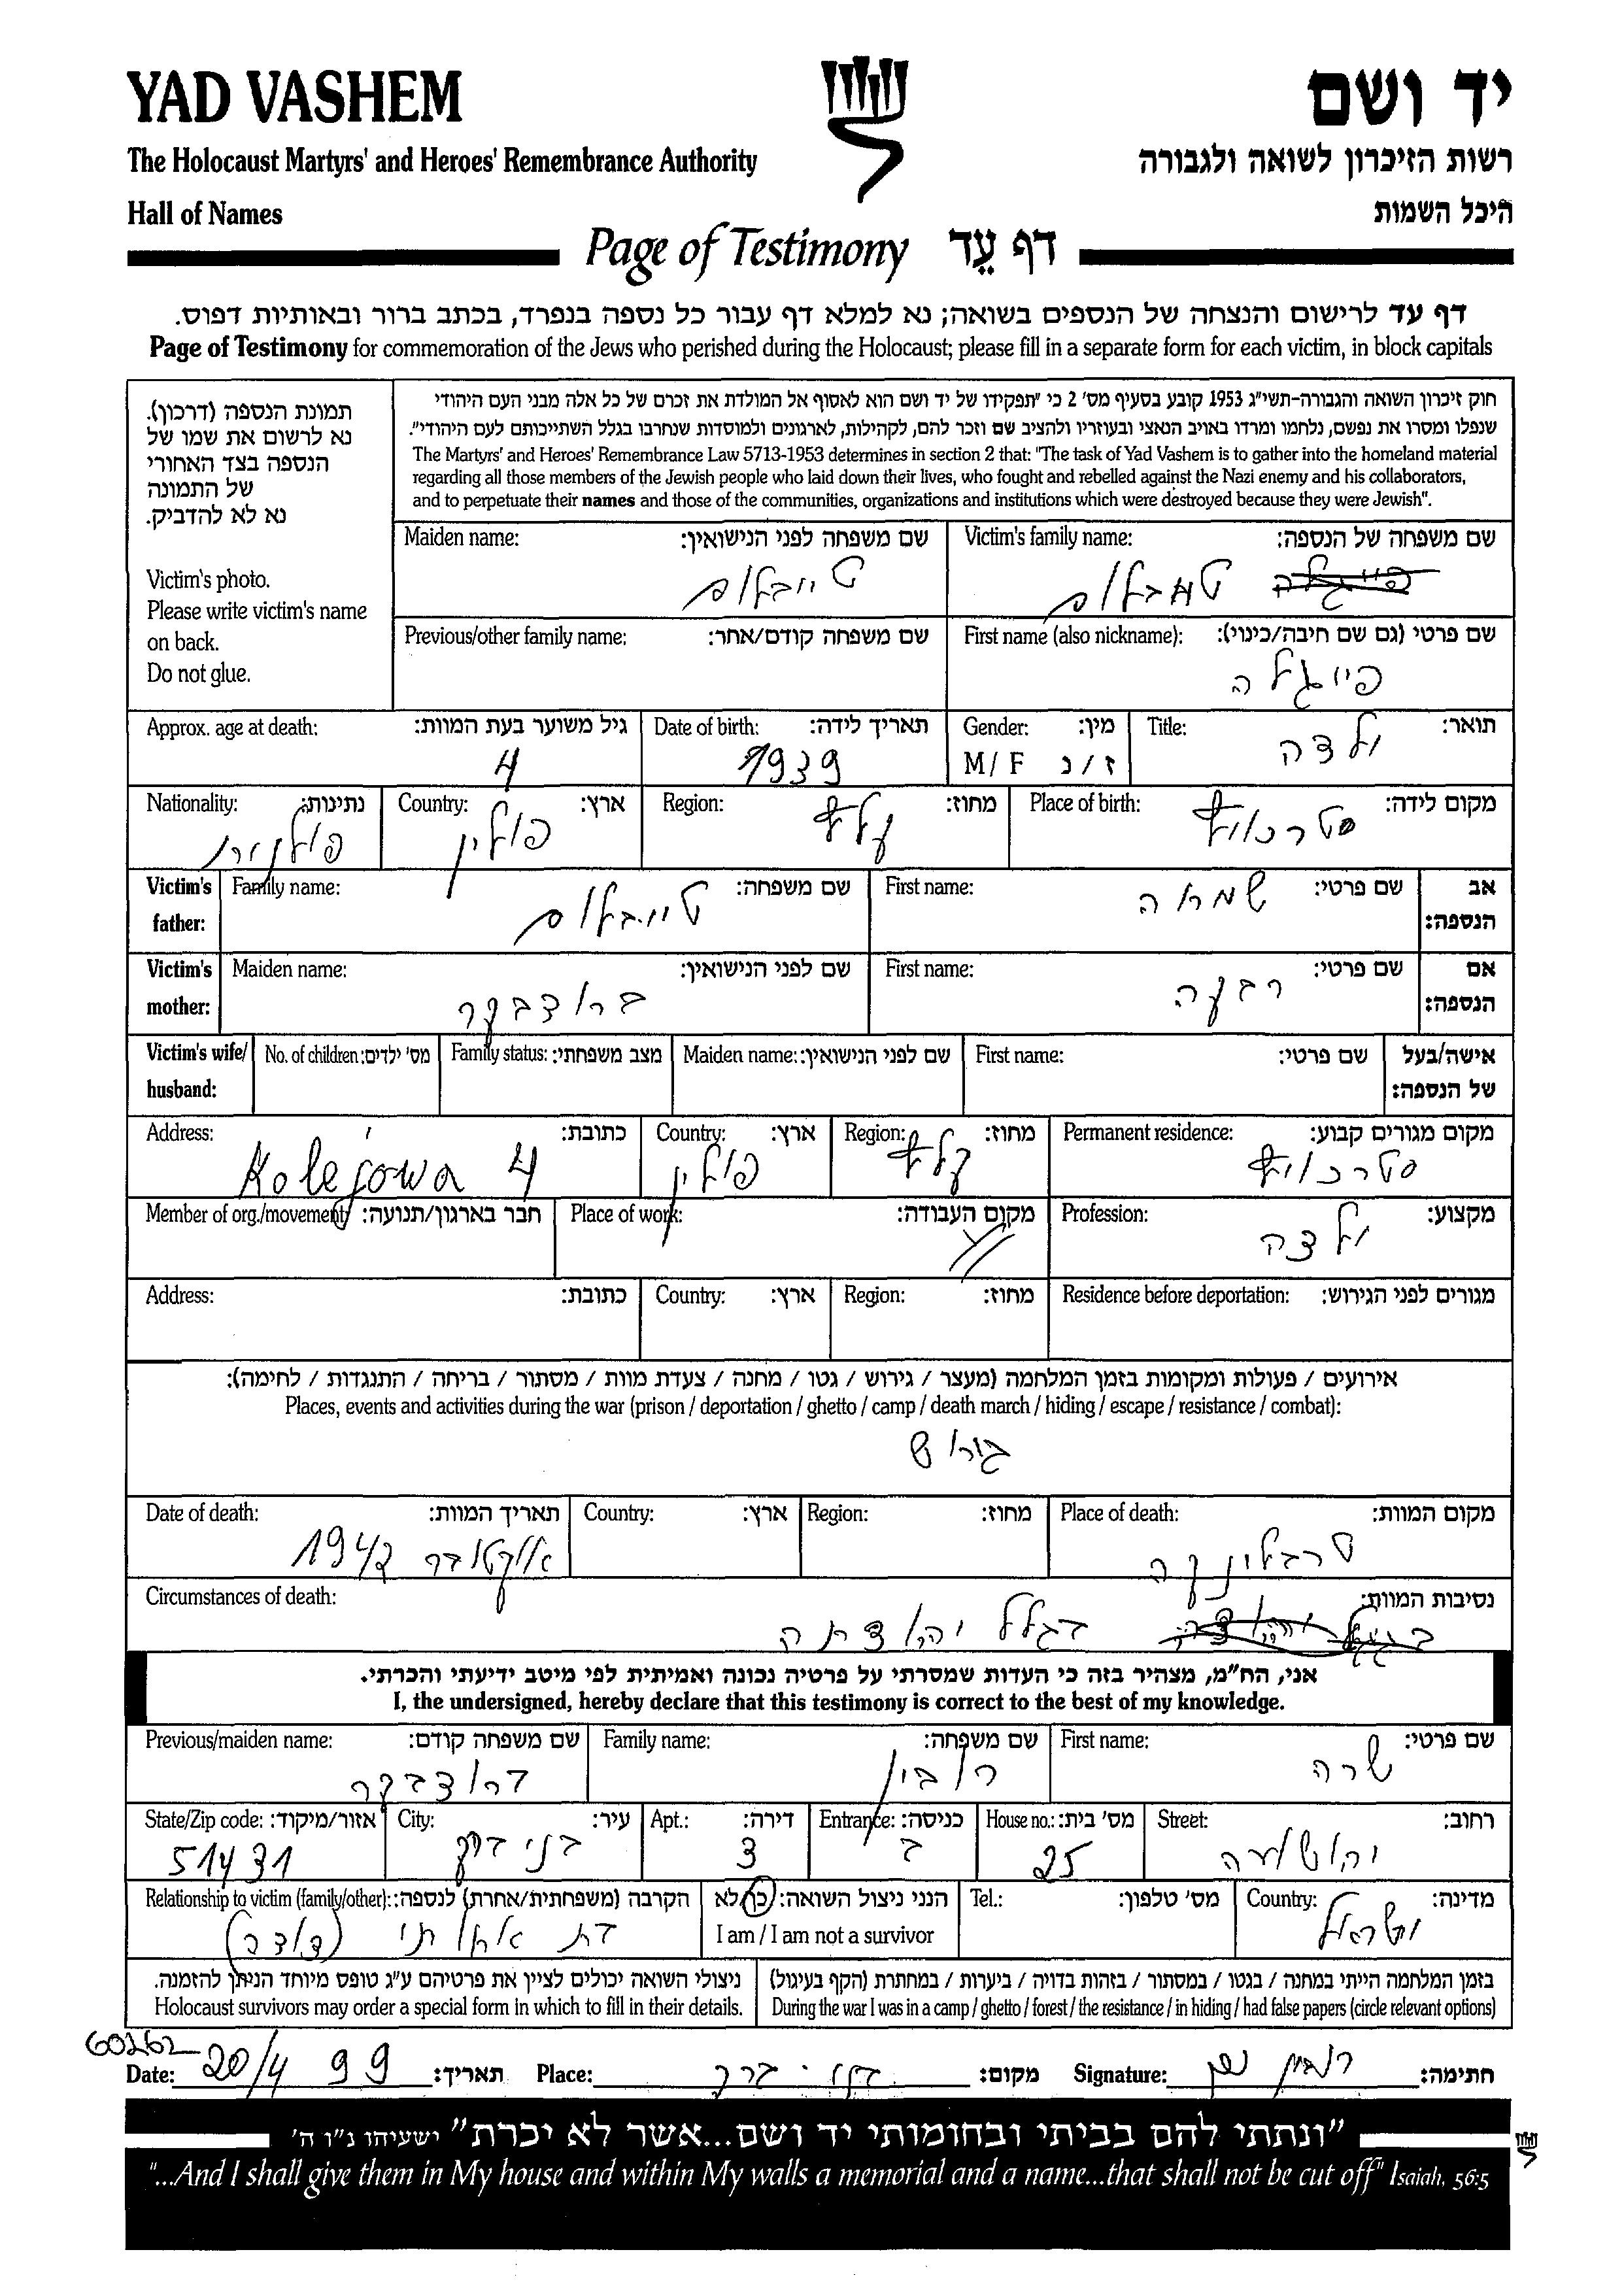 YAD VASHEM
יד ושם
The Holocaust Martyrs' and Heroes' Remembrance Authority
רשות הזיכרון לשואה ולגבורה
Hall of Names
היכל השמות
Page of Testimony דף עֵד
דף עד לרישום והנצחה של הנספים בשואה; נא למלא דף עבור כל נספה בנפרד, בכתב ברור ובאותיות דפוס.
Page of Testimony for commemoration of the Jews who perished during the Holocaust; please fill in a separate form for each victim, in block capitals
תמונת הנספה (דרכון).
נא לרשום את שמו של
הנספה בצד האחורי
של התמונה
נא לא להדביק.
Victim's photo.
Please write victim's name
on back.
Do not glue.
חוק זיכרון השואה והגבורה-תשי"ג 1953 קובע בסעיף מס' 2 כי "תפקידו של יד ושם הוא לאסוף אל המולדת את זכרם של כל אלה מבני העם היהודי
שנפלו ומסרו את נפשם, נלחמו ומרדו באויב הנאצי ובעוזריו ולהציב שם וזכר להם, לקהילות, לארגונים ולמוסדות שנחרבו בגלל השתייכותם לעם היהודי".
The Martyrs' and Heroes' Remembrance Law 5713-1953 determines in section 2 that: "The task of Yad Vashem is to gather into the homeland material
regarding all those members of the Jewish people who laid down their lives, who fought and rebelled against the Nazi enemy and his collaborators,
and to perpetuate their names and those of the communities, organizations and institutions which were destroyed because they were Jewish".
שם משפחה של הנספה: Victim's family name:
שם משפחה לפני הנישואין: Maiden name:
טייבלום
שם פרטי (גם שם חיבה/כינוי): First name (also nickname):
פייגלה
שם משפחה קודם/אחר: Previous/other family name:
תואר: Title:
ילדה
מין: Gender:
ז / נ M / F
תאריך לידה: Date of birth:
1939
גיל משוער בעת המוות: Approx. age at death:
4
מקום לידה: Place of birth:
מחוז: Region:
ארץ: Country:
פולין
נתינות: Nationality:
פולנית
אב הנספה: Victim's father:
שם פרטי: First name:
שם משפחה: Family name:
טייבלום
אם הנספה: Victim's mother:
שם פרטי: First name:
שם לפני הנישואין: Maiden name:
אישה/בעל של הנספה: Victim's wife/ husband:
שם פרטי: First name:
שם לפני הנישואין: Maiden name:
מצב משפחתי: Family status:
מס' ילדים: No. of children:
מקום מגורים קבוע: Permanent residence:
מחוז: Region:
ארץ: Country:
פולין
כתובת: Address:
Kolejowa 4
מקצוע: Profession:
ילדה
מקום העבודה: Place of work:
חבר בארגון/תנועה: Member of org./movement:
מגורים לפני הגירוש: Residence before deportation:
מחוז: Region:
ארץ: Country:
כתובת: Address:
אירועים / פעולות ומקומות בזמן המלחמה (מעצר / גירוש / גטו / מחנה / צעדת מוות / מסתור / בריחה / התנגדות / לחימה):
Places, events and activities during the war (prison / deportation / ghetto / camp / death march / hiding / escape / resistance / combat):
גירוש
מקום המוות: Place of death:
טרבלינקה
מחוז: Region:
ארץ: Country:
תאריך המוות: Date of death:
אוקטובר 1942
נסיבות המוות: Circumstances of death:
בגלל יהדותה
אני, הח"מ, מצהיר בזה כי העדות שמסרתי על פרטיה נכונה ואמיתית לפי מיטב ידיעתי והכרתי.
I, the undersigned, hereby declare that this testimony is correct to the best of my knowledge.
שם פרטי: First name:
שרה
שם משפחה: Family name:
רובין
שם משפחה קודם: Previous/maiden name:
רחוב: Street:
מס' בית: House no.:
25
כניסה: Entrance:
ב
דירה: Apt.:
3
עיר: City:
בני ברק
אזור/מיקוד: State/Zip code:
51431
מדינה: Country:
ישראל
מס' טלפון: Tel.:
הנני ניצול השואה: כן/לא
I am / I am not a survivor
הקרבה (משפחתית/אחרת) לנספה: Relationship to victim (family/other):
בת אחותי (דודה)
בזמן המלחמה הייתי במחנה / בגטו / במסתור / בזהות בדויה / ביערות / במחתרת (הקף בעיגול)
During the war I was in a camp / ghetto / forest / the resistance / in hiding / had false papers (circle relevant options)
ניצולי השואה יכולים לציין את פרטיהם ע"ג טופס מיוחד הניתן להזמנה.
Holocaust survivors may order a special form in which to fill in their details.
60262
Date: 20/4 99 תאריך: Place: בני ברק מקום: Signature: רובין שרה חתימה:
"ונתתי להם בביתי ובחומותי יד ושם...אשר לא יכרת" ישעיהו נ"ו ה'
"...And I shall give them in My house and within My walls a memorial and a name...that shall not be cut off" Isaiah, 56:5